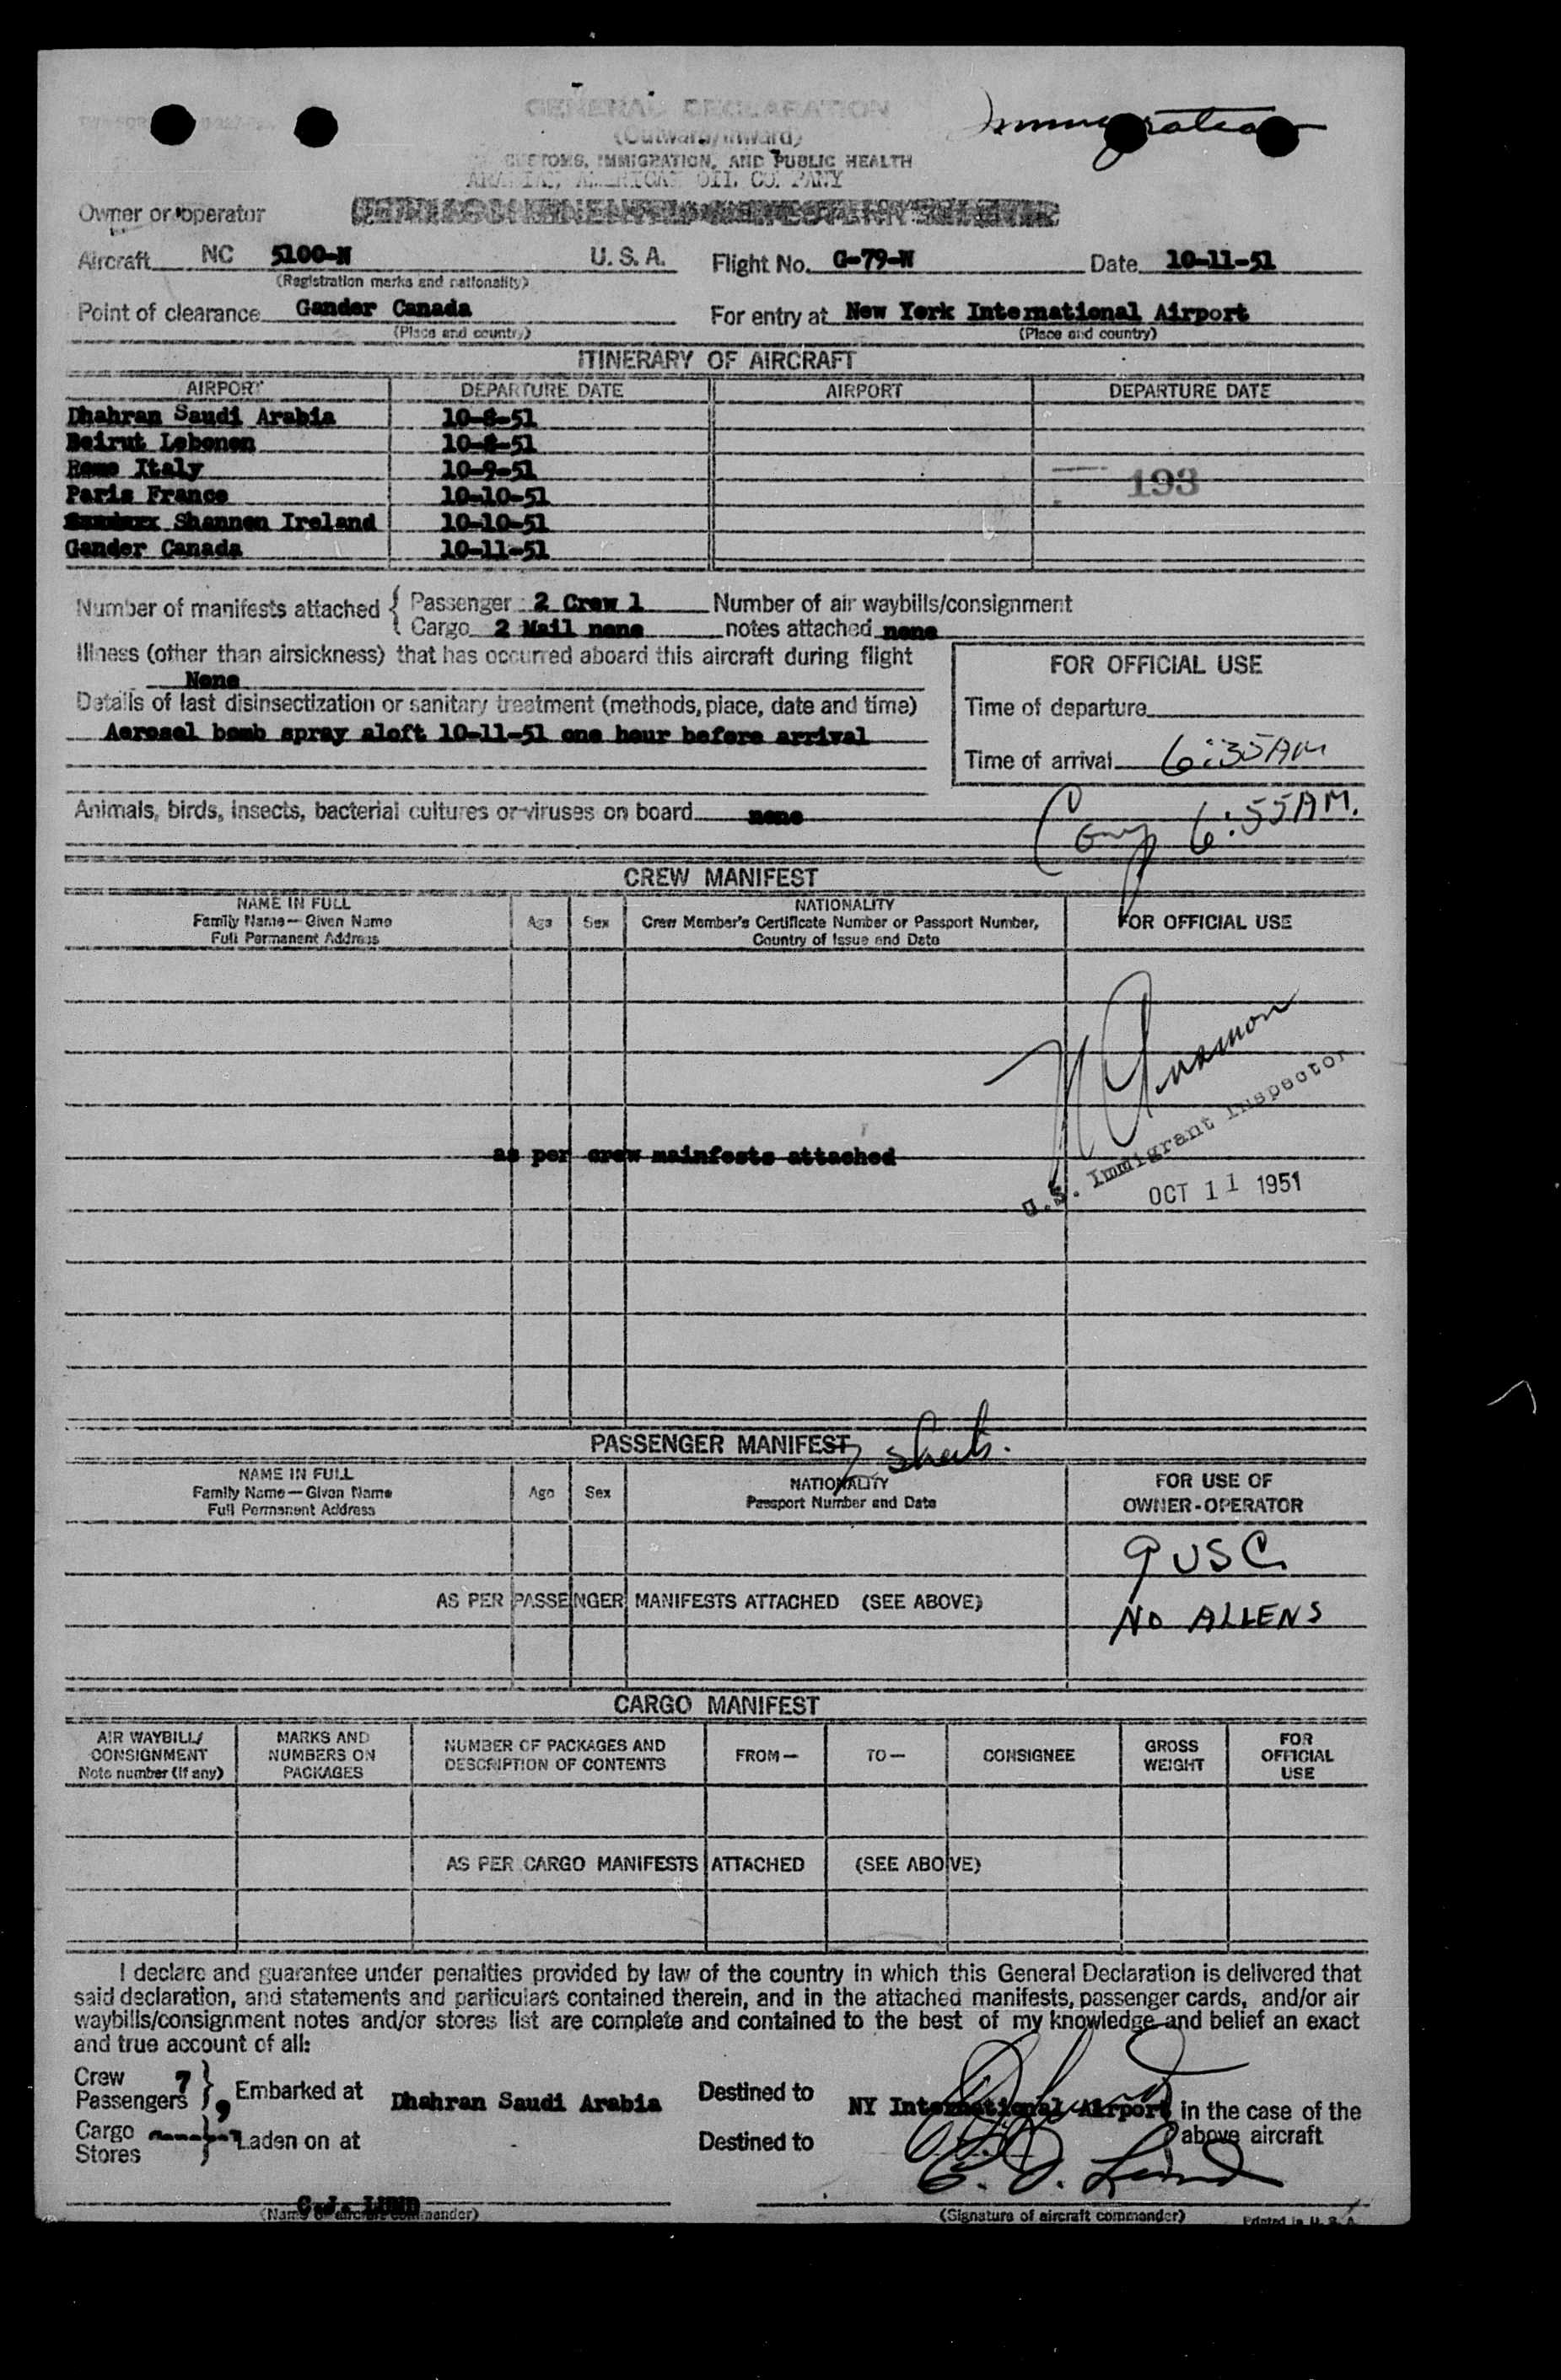 GENERAL DECLARATION
(Outward/Inward)
Immigration
CUSTOMS, IMMIGRATION, AND PUBLIC HEALTH
ARABIAN AMERICAN OIL COMPANY
Owner or operator
Aircraft NC 5100-N U.S.A. Flight No. G-79-W Date 10-11-51
(Registration marks and nationality)
Point of clearance Gander Canada For entry at New York International Airport
(Place and country) (Place and country)
ITINERARY OF AIRCRAFT
AIRPORT DEPARTURE DATE AIRPORT DEPARTURE DATE
Dhahran Saudi Arabia 10-8-51
Beirut Lebonon 10-8-51
Rome Italy 10-9-51
193
Paris France 10-10-51
Shannon Ireland 10-10-51
Gander Canada 10-11-51
Number of manifests attached { Passenger 2 Crew 1 Number of air waybills/consignment
Cargo 2 Mail none notes attached none
Illness (other than airsickness) that has occurred aboard this aircraft during flight
None
FOR OFFICIAL USE
Details of last disinsectization or sanitary treatment (methods, place, date and time)
Time of departure
Aerosel bomb spray aloft 10-11-51 one hour before arrival
Time of arrival 6:35AM
Animals, birds, insects, bacterial cultures or viruses on board none
6:55AM.
CREW MANIFEST
NAME IN FULL
Family Name—Given Name
Full Permanent Address
Age Sex
NATIONALITY
Crew Member's Certificate Number or Passport Number,
Country of Issue and Date
FOR OFFICIAL USE
as per crew mainfests attached
U.S. Immigrant Inspector
OCT 11 1951
PASSENGER MANIFEST
2 sheets.
NAME IN FULL
Family Name—Given Name
Full Permanent Address
Age Sex
NATIONALITY
Passport Number and Date
FOR USE OF
OWNER-OPERATOR
9 USC
AS PER PASSENGER MANIFESTS ATTACHED (SEE ABOVE)
NO ALIENS
CARGO MANIFEST
AIR WAYBILL/
CONSIGNMENT
Note number (if any)
MARKS AND
NUMBERS ON
PACKAGES
NUMBER OF PACKAGES AND
DESCRIPTION OF CONTENTS
FROM—
TO—
CONSIGNEE
GROSS
WEIGHT
FOR
OFFICIAL
USE
AS PER CARGO MANIFESTS ATTACHED (SEE ABOVE)
I declare and guarantee under penalties provided by law of the country in which this General Declaration is delivered that
said declaration, and statements and particulars contained therein, and in the attached manifests, passenger cards, and/or air
waybills/consignment notes and/or stores list are complete and contained to the best of my knowledge and belief an exact
and true account of all:
Crew 7
Passengers 9 } Embarked at Dhahran Saudi Arabia Destined to NY International Airport in the case of the
above aircraft
Cargo
Stores } Laden on at Destined to
C. J. Lund
C.J. LUND
(Name of aircraft commander) (Signature of aircraft commander) Printed in U. S. A.